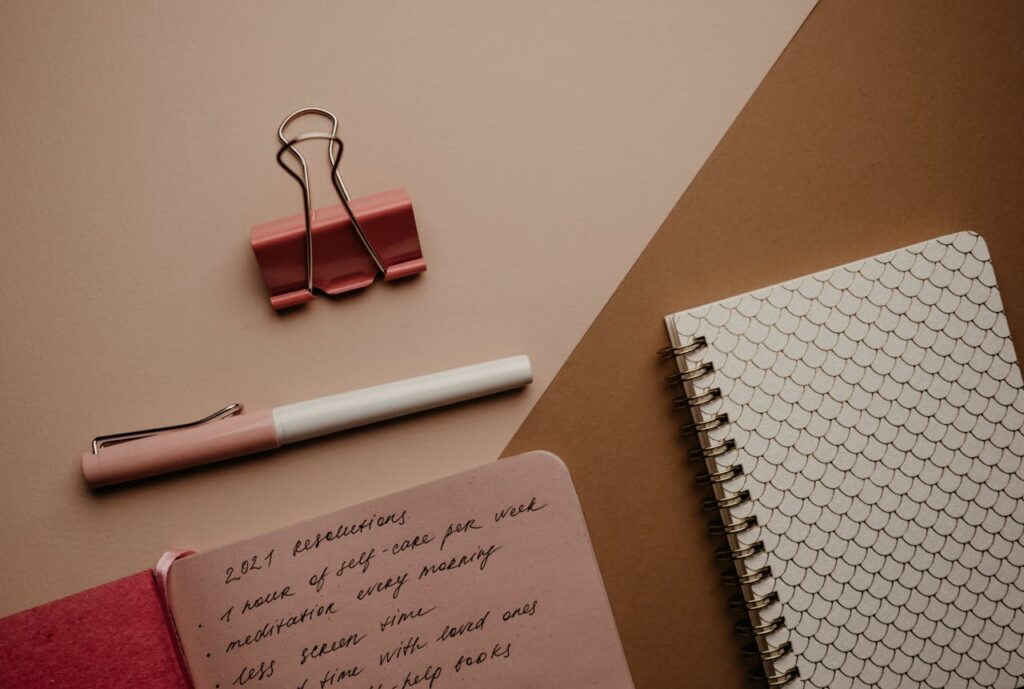 2021 resolutions
• 1 hour of self-care per week
• meditation every morning
• less screen time
time with loved ones
help books